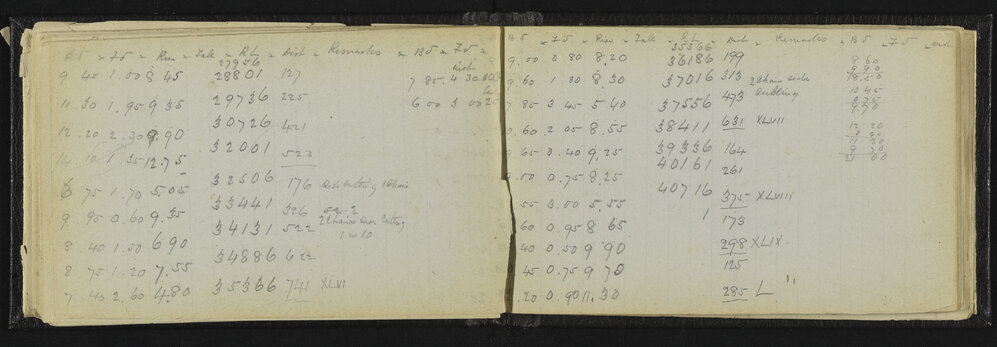 B.S - F.S - Rise - Fall - R.L - Dist - Remarks - B.S - F.S -
27956
9 45 1.00 8 45 28801 127
7 85 4 30
11.30 1.95 9 35 29736 225
6 00 3 00
12.20 2.30 9.90 30726 421
10 1.35 12.75 32001 523
6 75 1.70 5.05 32506 176 Chain
9.95 0.60 9.35 33441 326 52.2
2 Chains Over Cutting
8 40 1.50 6 90 34131 522 1 in 10
8 75 1.20 7.55 34886 622
7 40 2.60 4.80 35366 741 XLVI
B.S - F.S - Rise - Fall - R.L - Dist - Remarks - B.S - F.S -
35366
9.00 0.80 8.20 36186 199
9.60 1.30 8.30 37016 313 2 Chain side
cutting
7 85 3 45 5 40 37556 473
.60 2 05 8.55 38411 631 XLVII
9 65 0.40 9.25 39336 164
.00 0.75 8.25 40161 261
55 3.00 5.55 40716 375 XLVIII
60 0.95 8 65 1 173
40 0.50 9 90 298 XLIX
45 0.75 9 70 125
.20 0.90 11.30 285 L "
8 60
9 90
18.50
10 45
12 20
21 00